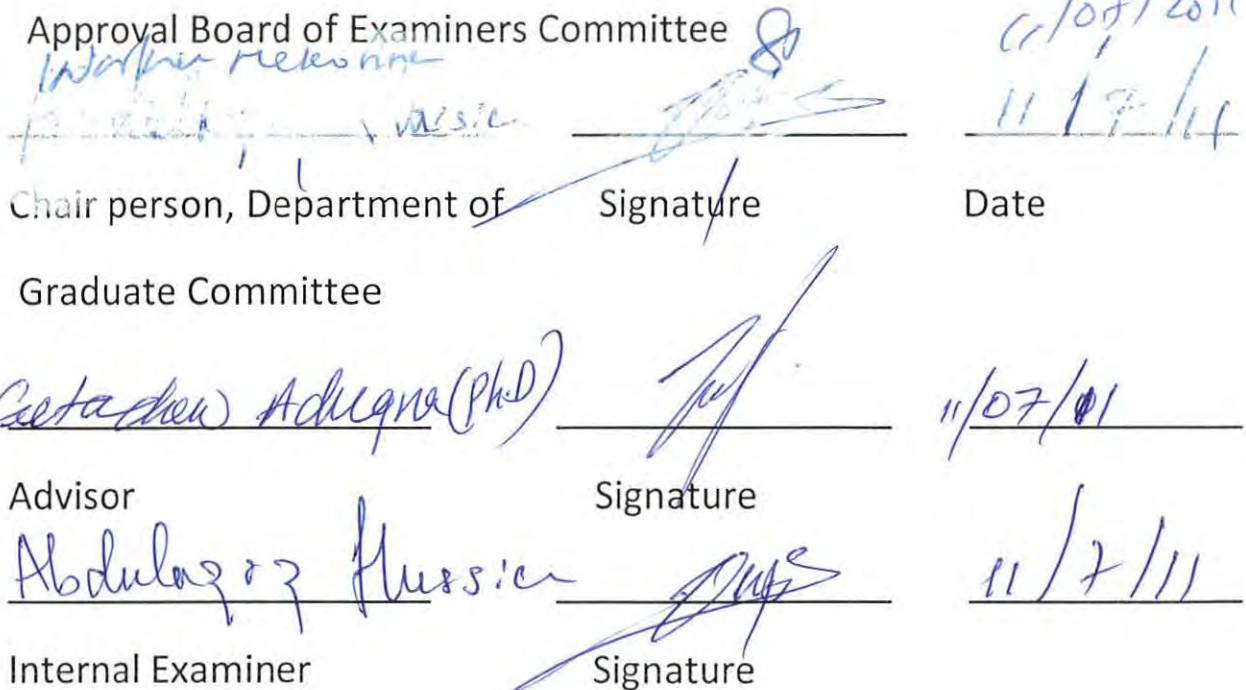 Approval Board of Examiners Committee
11/07/2011
Mekonnen
11/7/11
Chair person, Department of Signature Date
Graduate Committee
Getachew Adugna (Ph.D) 11/07/01
Advisor Signature
Abdulaziz Hussien 11/7/11
Internal Examiner Signature